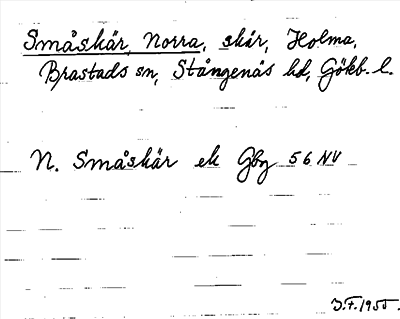 Småskär, Norra, skär, Holma,
Brastads sn, Stångenäs hd, Gökb. l.
N. Småskär ek Gbg 56 NV
J.F. 1955.